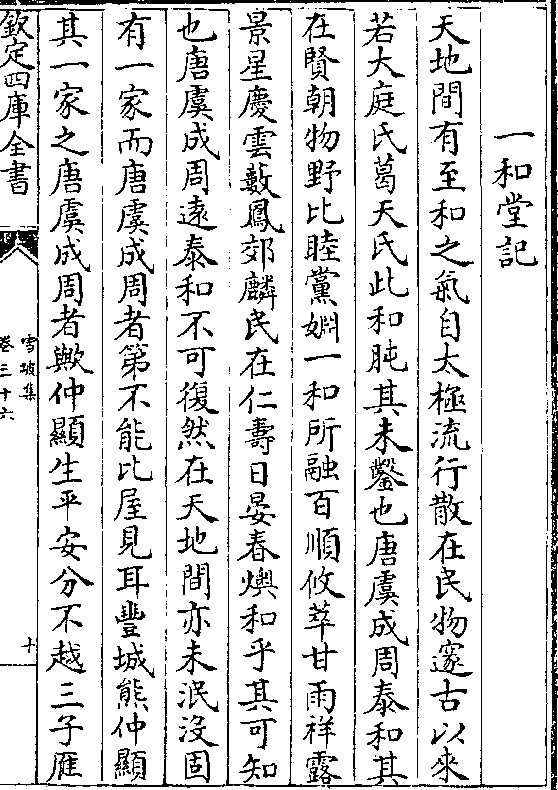 一和堂記
天地間有至和之氣自太極流行散在民物邃古以來
若大庭氏葛天氏此和肫其未鑿也唐虞成周泰和其
在賢朝物野比睦黨婣一和所融百順攸萃甘雨祥露
景星慶雲藪鳳郊麟民在仁壽日晏春燠和乎其可知
也唐虞成周遠泰和不可復然在天地間亦未泯沒固
有一家而唐虞成周者第不能比屋見耳豐城熊仲顯
其一家之唐虞成周者歟仲顯生平安分不越三子雁
欽定四庫全書
雪坡集
卷三十六
十